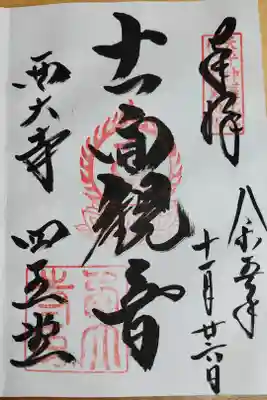 奉拝
令和五年
十一月廿六日
十一面観音
西大寺 四王堂